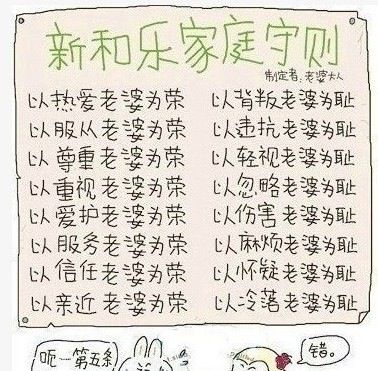 新和乐家庭守则
制定者:老婆大人
以热爱老婆为荣 以背叛老婆为耻
以服从老婆为荣 以违抗老婆为耻
以尊重老婆为荣 以轻视老婆为耻
以重视老婆为荣 以忽略老婆为耻
以爱护老婆为荣 以伤害老婆为耻
以服务老婆为荣 以麻烦老婆为耻
以信任老婆为荣 以怀疑老婆为耻
以亲近老婆为荣 以冷落老婆为耻
呃一第五条
错。